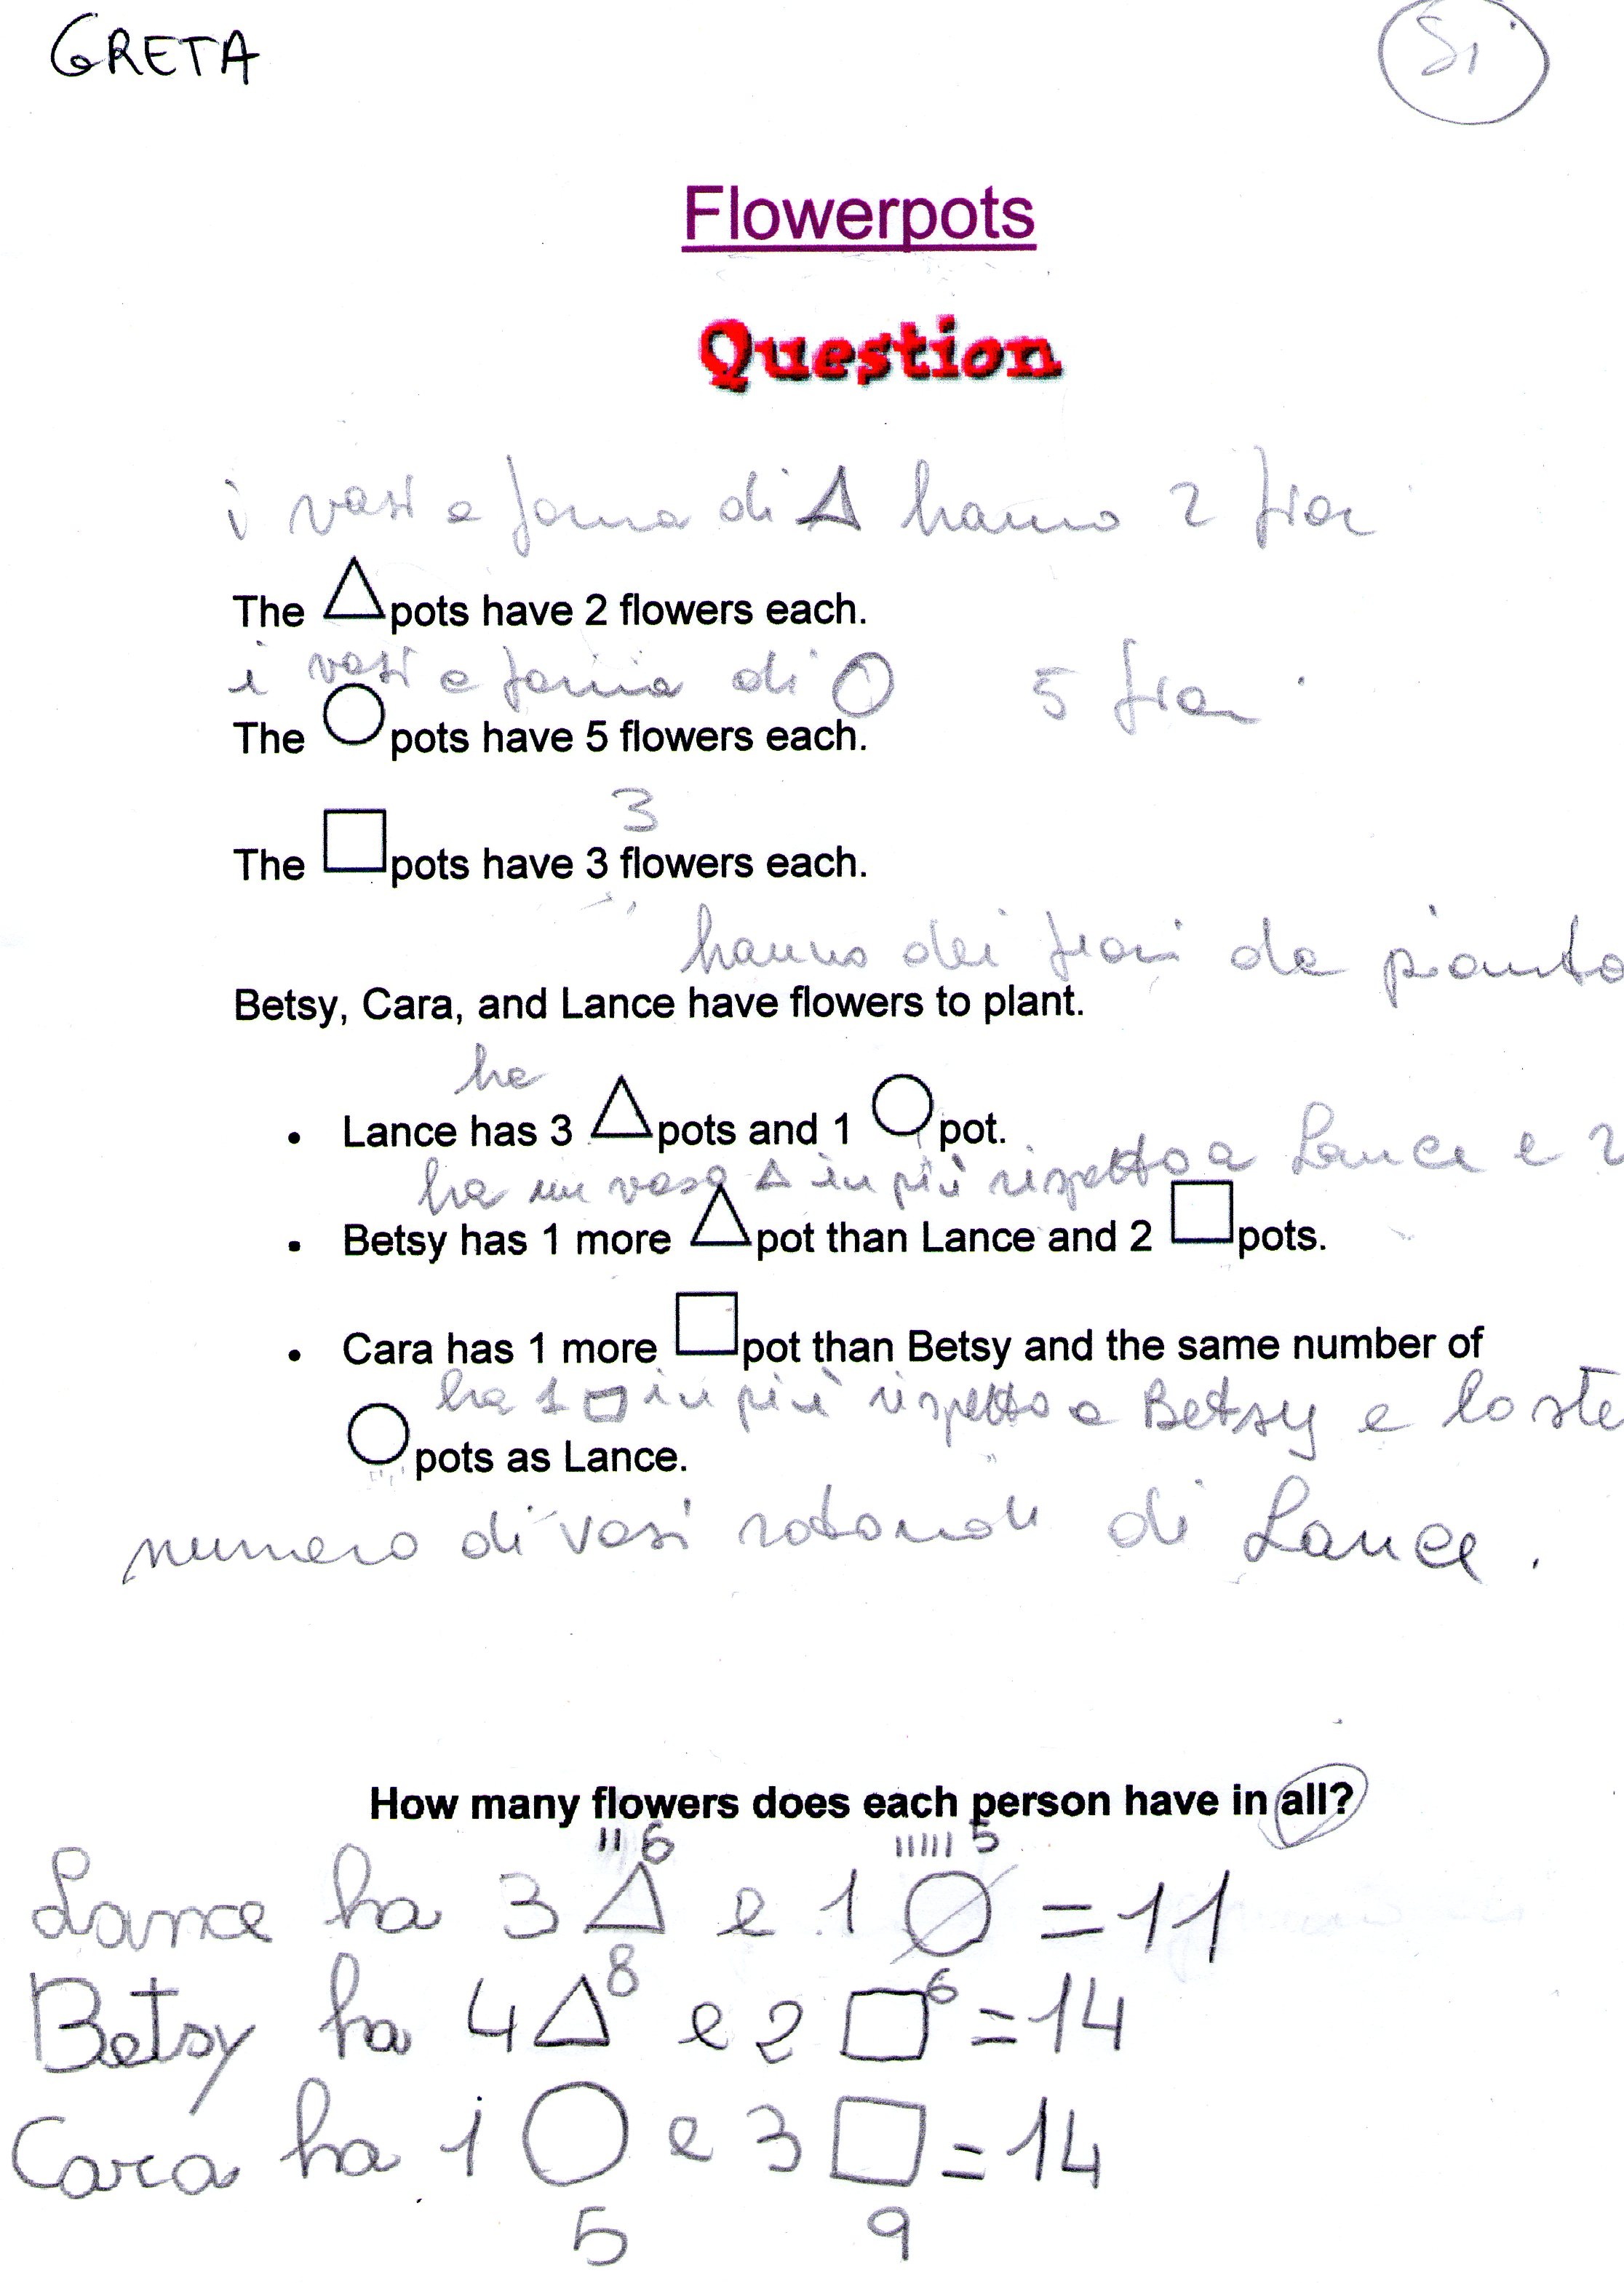 GRETA
Si
Flowerpots
Question
i vasi a forma di △ hanno 2 fiori
The △ pots have 2 flowers each.
i vasi a forma di ○ 5 fiori
The ○ pots have 5 flowers each.
3
The □ pots have 3 flowers each.
hanno dei fiori da pianta
Betsy, Cara, and Lance have flowers to plant.
ha
• Lance has 3 △ pots and 1 ○ pot.
ha un vaso △ in più rispetto a Lance e 2
• Betsy has 1 more △ pot than Lance and 2 □ pots.
• Cara has 1 more □ pot than Betsy and the same number of
ha 1 □ in più rispetto a Betsy e lo ste
○ pots as Lance.
numero di vasi rotondi di Lance.
How many flowers does each person have in all?
II 6 IIIII 5
Lance ha 3 △ e 1 ○ = 11
8 6
Betsy ha 4 △ e 2 □ = 14
Cara ha 1 ○ e 3 □ = 14
5 9